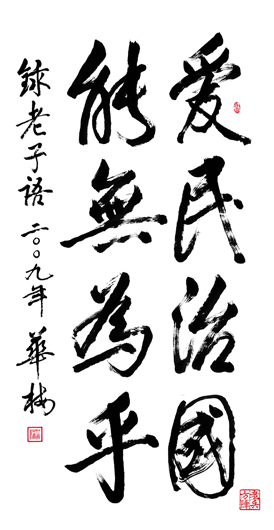 爱民治國
能無為乎
録老子语二〇〇九年華梅